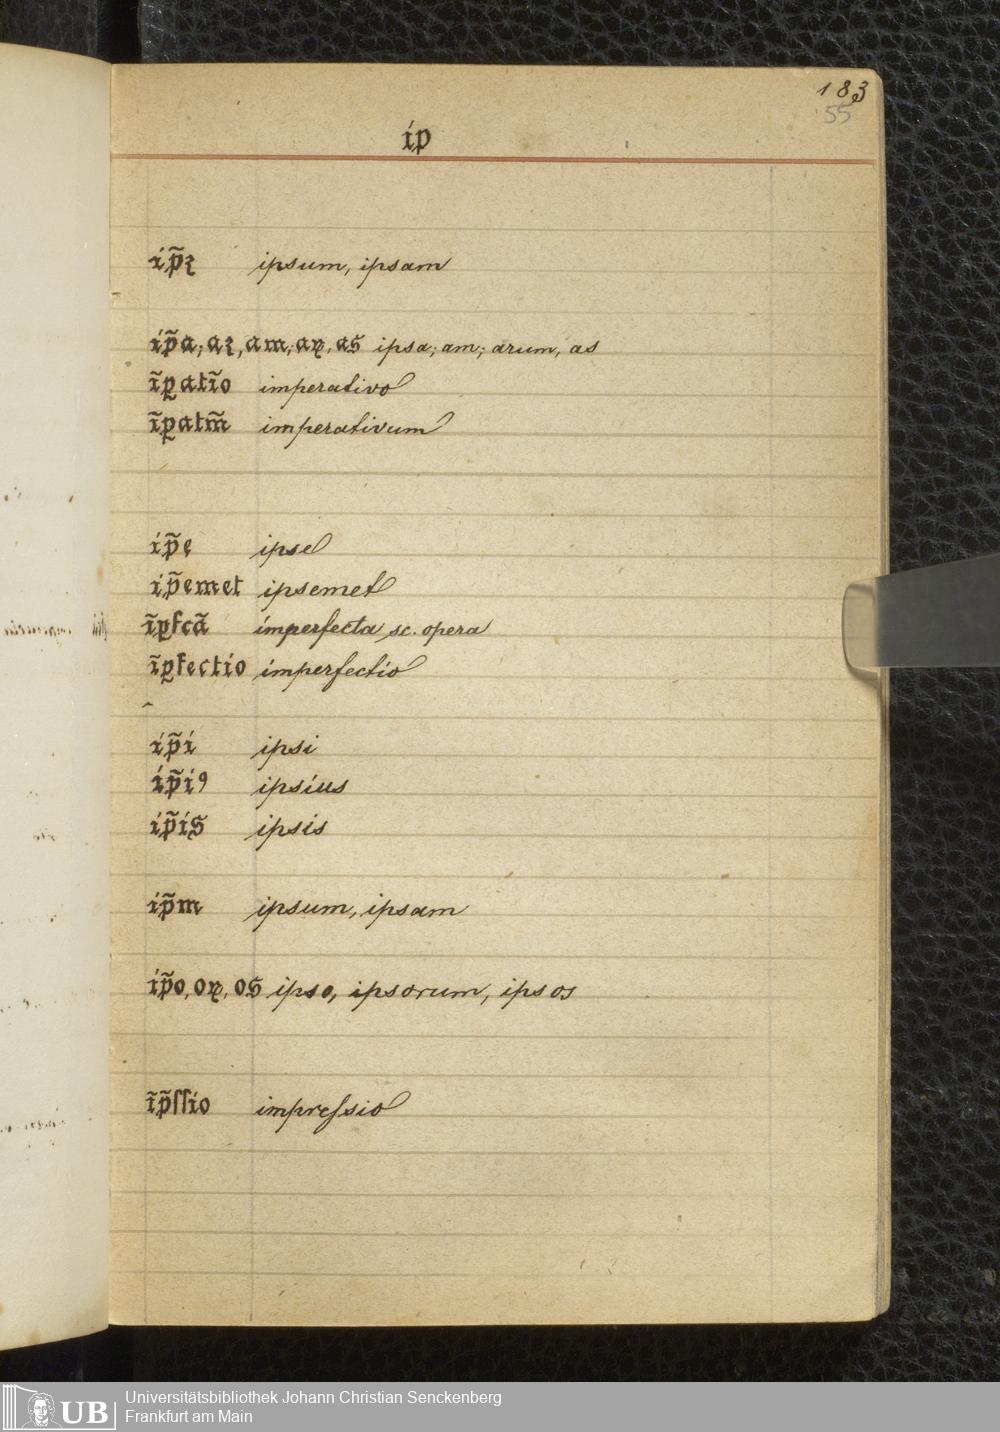 183
55
ip
ip̃ꝫ ipsum, ipsam
ip̃a; aꝫ, am; aꝝ, as ipsa; am; arum, as
ĩꝑatĩo imperativo
ĩꝑatm̃ imperativum
ip̃e ipse
ip̃emet ipsemet
ĩꝑfcã imperfecta sc. opera
ĩꝑfectio imperfectio
ip̃i ipsi
ip̃iꝰ ipsius
ip̃is ipsis
ip̃m ipsum, ipsam
ip̃o, oꝝ, os ipso, ipsorum, ipsos
ĩp̃ſſio impreſsio
UB
Universitätsbibliothek Johann Christian Senckenberg
Frankfurt am Main